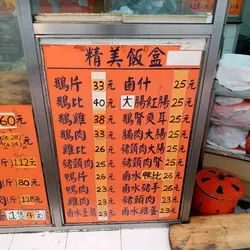 精美飯盒
鵝片 33元 鹵什 25元
鵝比 40元 大腸紅腸 25元
鵝雞 38元 鵝腎爽耳 25元
鵝肉 33元 腸肉大腸 25元
鴨比 26元 豬頭大腸 25元
豬頭肉 25元 豬頭肉腎 25元
鴨片 26元 鹵水鴨比 26元
鴨肉 23元 鹵水豬手 26元
雞肉 23元 鹵水大腸 25元
鹵水豆腐 23元 鹵水雞蛋 23元
60元
元
112元
80元
4元